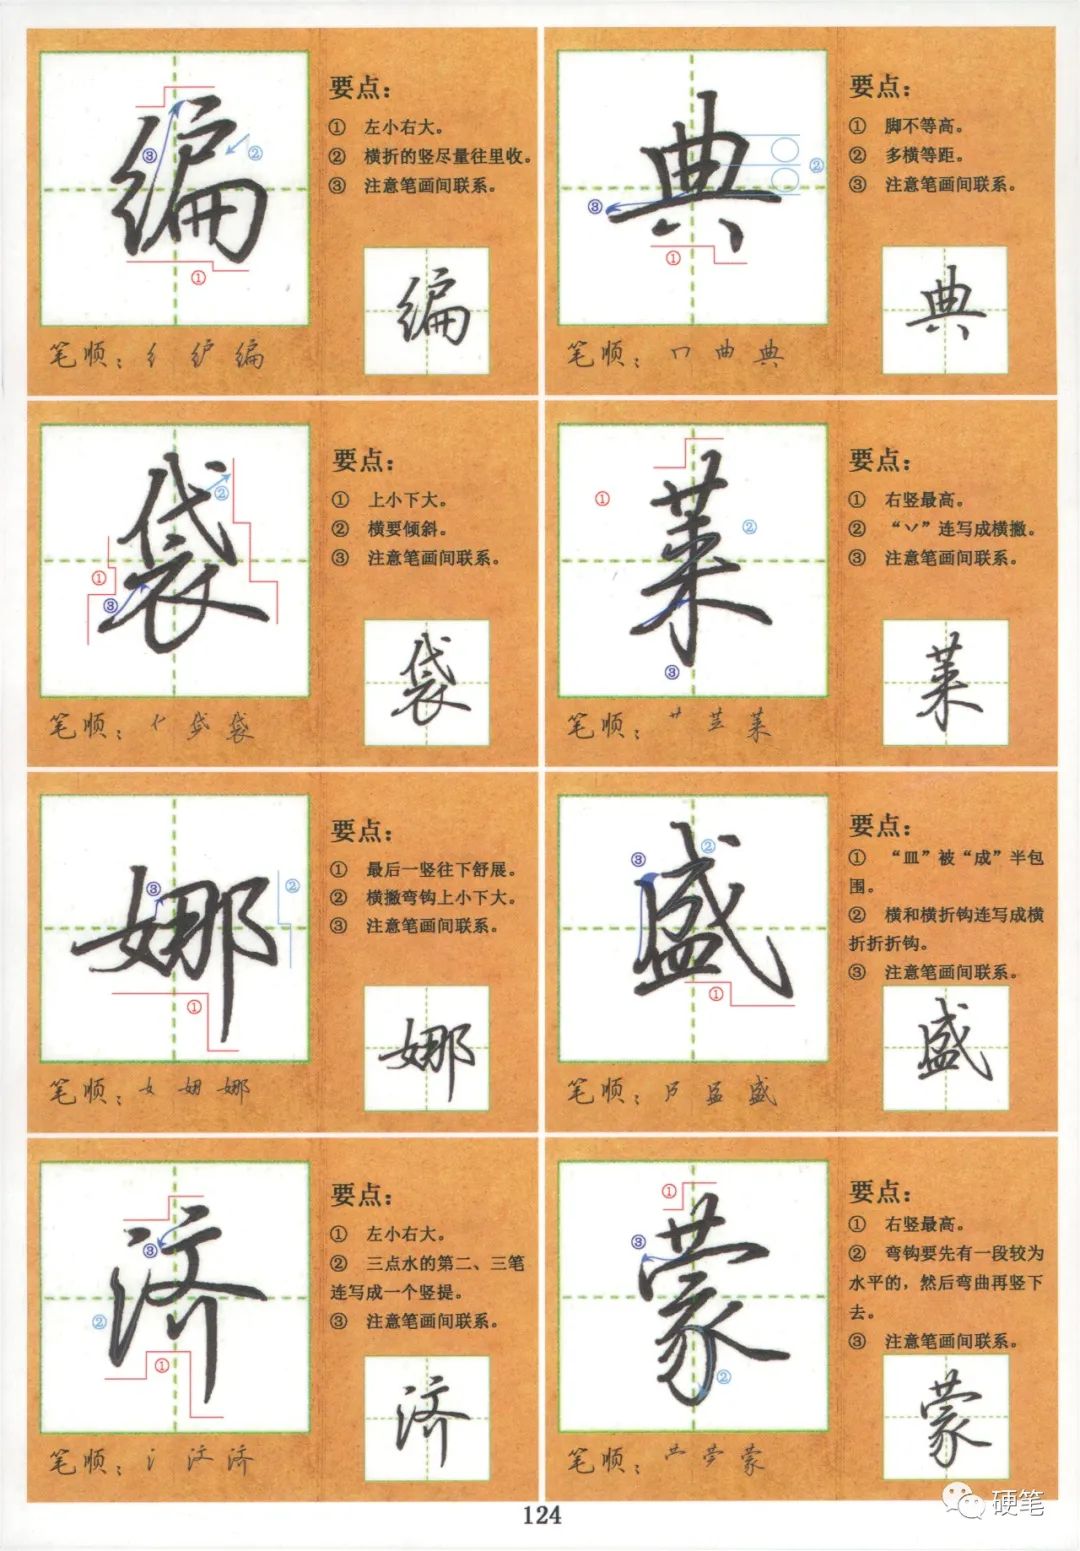 编
要点：
① 左小右大。
② 横折的竖尽量往里收。
③ 注意笔画间联系。
③
②
①
编
笔顺：纟 纩 编
典
要点：
① 脚不等高。
② 多横等距。
③ 注意笔画间联系。
②
③
①
典
笔顺：冂 曲 典
袋
要点：
① 上小下大。
② 横要倾斜。
③ 注意笔画间联系。
②
①
③
袋
笔顺：亻 代 袋
莱
要点：
① 右竖最高。
② “丷”连写成横撇。
③ 注意笔画间联系。
①
②
③
莱
笔顺：艹 莱
娜
要点：
① 最后一竖往下舒展。
② 横撇弯钩上小下大。
③ 注意笔画间联系。
③
②
①
娜
笔顺：女 娜
盛
要点：
① “皿”被“成”半包
围。
② 横和横折钩连写成横
折折折钩。
③ 注意笔画间联系。
②
③
①
盛
笔顺：盛
济
要点：
① 左小右大。
② 三点水的第二、三笔
连写成一个竖提。
③ 注意笔画间联系。
③
②
①
济
笔顺：氵 汶 济
蒙
要点：
① 右竖最高。
② 弯钩要先有一段较为
水平的，然后弯曲再竖下
去。
③ 注意笔画间联系。
①
③
②
蒙
笔顺：蒙
124
硬笔